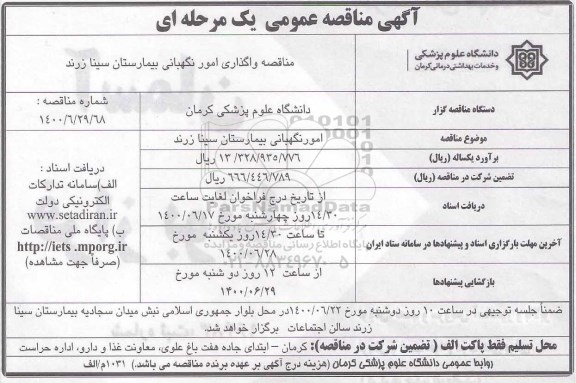 آگهی مناقصه عمومی یک مرحله ای
دانشگاه علوم پزشکی
و خدمات بهداشتی درمانی کرمان
مناقصه واگذاری امور نگهبانی بیمارستان سینا زرند
دستگاه مناقصه گزار
دانشگاه علوم پزشکی کرمان
شماره مناقصه :
۱۴۰۰/۶/۲۹/۶۸
موضوع مناقصه
امورنگهبانی بیمارستان سینا زرند
برآورد یکساله (ریال)
۱۳/۳۲۸/۹۳۵/۷۷۶ ریال
تضمین شرکت در مناقصه (ریال)
۶۶۶/۴۴۶/۷۸۹ ریال
دریافت اسناد
از تاریخ درج فراخوان لغایت ساعت
۱۴/۳۰روز چهارشنبه مورخ ۱۴۰۰/۰۶/۱۷
آخرین مهلت بارگزاری اسناد و پیشنهادها در سامانه ستاد ایران
تا ساعت ۱۴/۳۰ روز یکشنبه مورخ
۱۴۰۰/۰۶/۲۸
بازگشایی پیشنهادها
از ساعت ۱۲ روز دو شنبه مورخ
۱۴۰۰/۰۶/۲۹
دریافت اسناد :
الف)سامانه تدارکات
الکترونیکی دولت
www.setadiran.ir
ب) پایگاه ملی مناقصات
http://iets .mporg.ir
(صرفاً جهت مشاهده)
ضمناً جلسه توجیهی در ساعت ۱۰ روز دوشنبه مورخ ۱۴۰۰/۰۶/۲۲در محل بلوار جمهوری اسلامی نبش میدان سجادیه بیمارستان سینا
زرند سالن اجتماعات برگزار خواهد شد.
محل تسلیم فقط پاکت الف ( تضمین شرکت در مناقصه): کرمان – ابتدای جاده هفت باغ علوی، معاونت غذا و دارو، اداره حراست
روابط عمومی دانشگاه علوم پزشکی کرمان (هزینه درج آگهی بر عهده برنده مناقصه می باشد.) ۱۰۳۱م/الف
ParsNamadData
پایگاه اطلاع رسانی مناقصه و مزایده